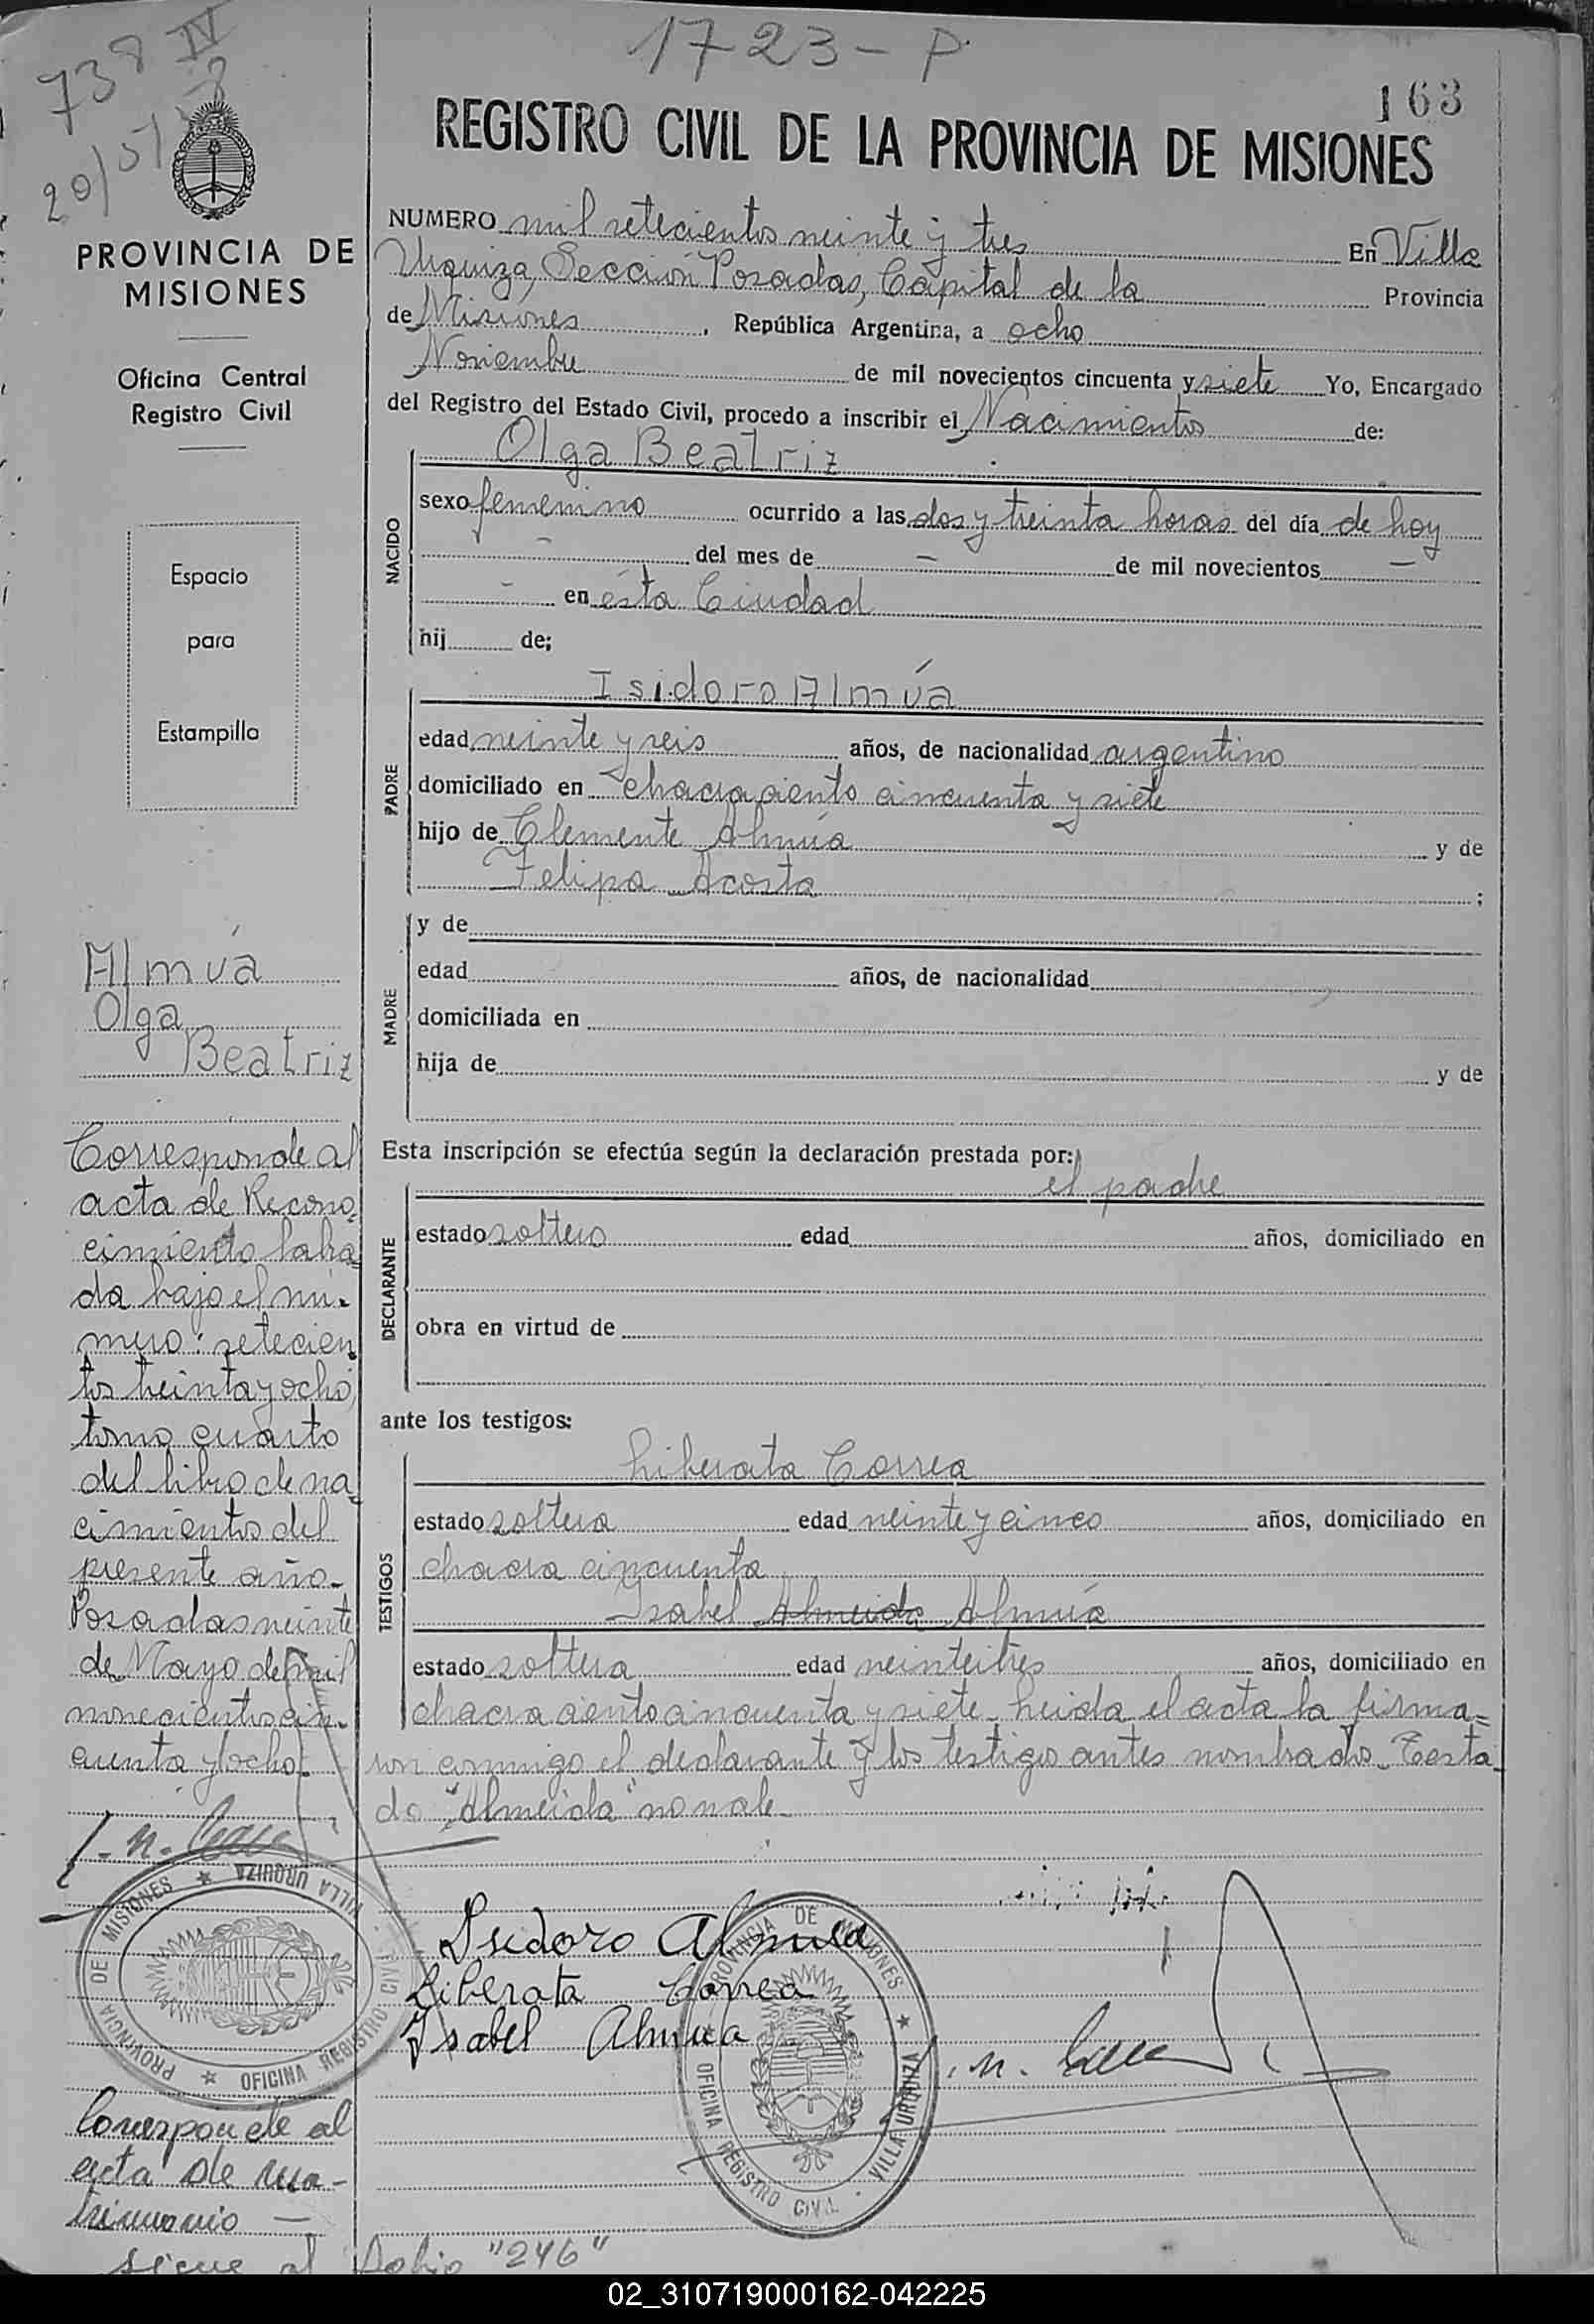 738 IV
20/5/58
1723 - P.
163
REGISTRO CIVIL DE LA PROVINCIA DE MISIONES
PROVINCIA DE
MISIONES
Oficina Central
Registro Civil
Espacio
para
Estampilla
NUMERO mil setecientos veinte y tres En Villa
Urquiza, Sección Posadas, Capital de la Provincia
de Misiones, República Argentina, a ocho
Noviembre de mil novecientos cincuenta y siete Yo, Encargado
del Registro del Estado Civil, procedo a inscribir el Nacimientos de:
NACIDO
Olga Beatriz
sexo femenino ocurrido a las dos y treinta horas del día de hoy
- del mes de - de mil novecientos -
- en ésta Ciudad
hij de;
PADRE
Isidoro Almúa
edad veinte y seis años, de nacionalidad argentino
domiciliado en chacra ciento cincuenta y siete
hijo de Clemente Almúa y de
Felipa Acosta ;
MADRE
y de
edad años, de nacionalidad
domiciliada en
hija de y de
Esta inscripción se efectúa según la declaración prestada por:
DECLARANTE
el padre
estado soltero edad años, domiciliado en
obra en virtud de
ante los testigos:
TESTIGOS
Liberata Correa
estado soltera edad veinte y cinco años, domiciliado en
chacra cincuenta
Isabel Almeida Almúa
estado soltera edad veintitres años, domiciliado en
chacra ciento cincuenta y siete. Leida el acta la firma=
ron conmigo el declarante y los testigos antes nombrados. Testa
do "Almeida" no vale-
Isidoro Almua
Liberata Correa
Isabel Almua
PROVINCIA DE MISIONES ★ VILLA URQUIZA · OFICINA REGISTRO CIVIL
Almúa
Olga
Beatriz
Corresponde al
acta de Recono-
cimiento labra
da bajo el nú-
mero: setecien
tos treinta y ocho
tomo cuarto
del libro de na
cimientos del
presente año-
Posadas veinte
de Mayo de mil
novecientos cin-
cuenta y ocho.-
PROVINCIA DE MISIONES ★ VILLA URQUIZA · OFICINA REGISTRO CIVIL ★
Corresponde al
acta de ma-
trimonio -
sigue al folio "246"
02_310719000162-042225